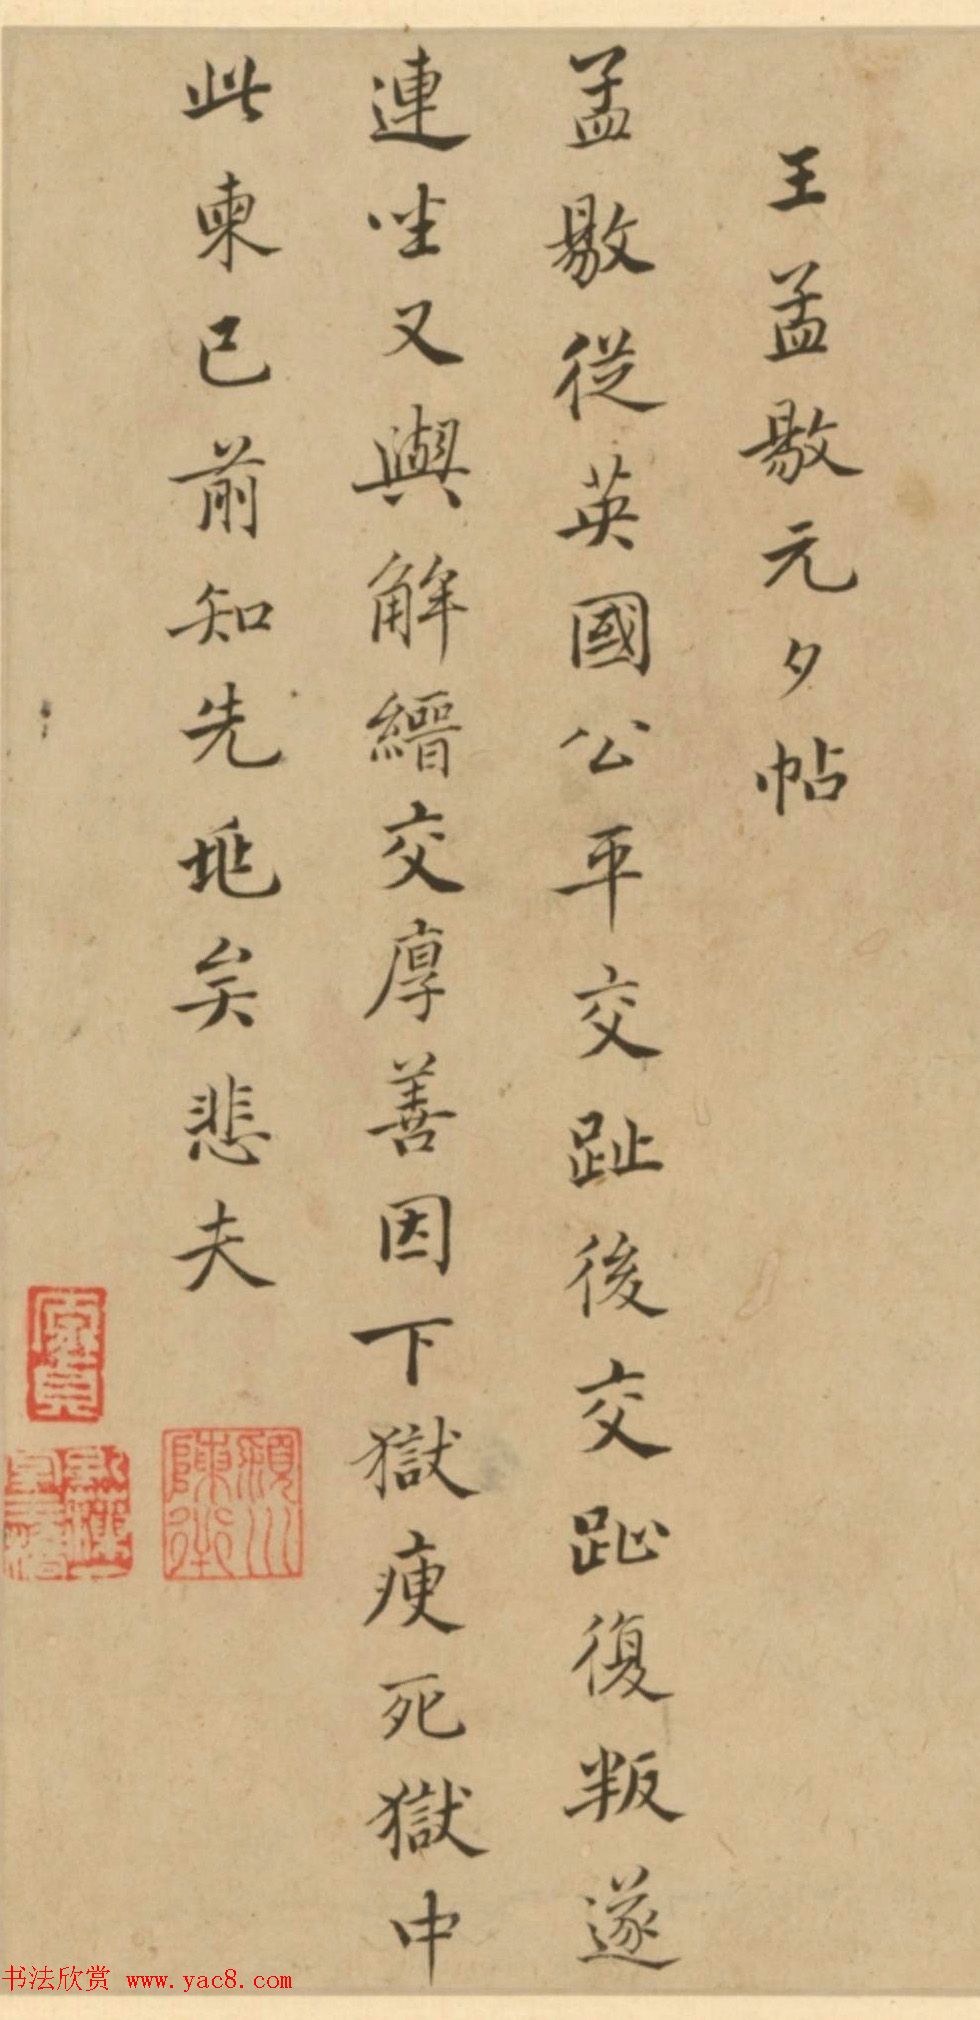 王孟敭元夕帖
孟敭從英國公平交趾後交趾復叛遂
連坐又與解縉交厚善因下獄瘐死獄中
此柬已前知先兆矣悲夫
潁川
陳
书法欣赏 www.yac8.com